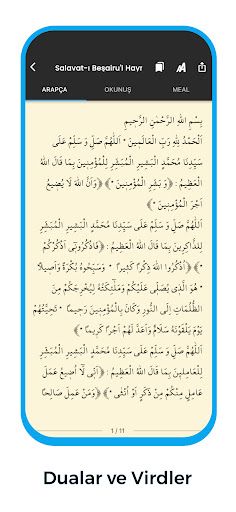 Salavat-ı Beşairu'l Hayr
ARAPÇA
OKUNUŞ
MEAL
بِسْمِ اللهِ الرَّحْمٰنِ الرَّحِيمِ
اَلْحَمْدُ لِلّٰهِ رَبِّ الْعَالَمِينَ ٠ اَللّٰهُمَّ صَلِّ وَ سَلِّمْ عَلَى
سَيِّدِنَا مُحَمَّدٍ الْبَشِيرِ الْمُبَشِّرِ لِلْمُؤْمِنِينَ بِمَا قَالَ اللهُ
الْعَظِيمُ : ﴿وَ بَشِّرِ الْمُؤْمِنِينَ ٠﴾ ﴿وَاَنَّ اللهَ لَا يُضِيعُ
اَجْرَ الْمُؤْمِنِينَ ٠﴾
اَللّٰهُمَّ صَلِّ وَ سَلِّمْ عَلَى سَيِّدِنَا مُحَمَّدٍ الْبَشِيرِ الْمُبَشِّرِ
لِلذَّاكِرِينَ بِمَا قَالَ اللهُ الْعَظِيمُ : ﴿فَاذْكُرُونِى اَذْكُرْكُمْ
٠﴾ ﴿اُذْكُرُوا اللهَ ذِكْرًا كَثِيرًا ٠ وَسَبِّحُوهُ بُكْرَةً وَاَصِيلًا
٠ هُوَ الَّذِى يُصَلِّى عَلَيْكُمْ وَمَلٰٓئِكَتُهُ لِيُخْرِجَكُمْ مِنَ
الظُّلُمَاتِ اِلَى النُّورِ وَكَانَ بِالْمُؤْمِنِينَ رَحِيمًا ٠ تَحِيَّتُهُمْ
يَوْمَ يَلْقَوْنَهُ سَلَامٌ وَاَعَدَّ لَهُمْ اَجْرًا كَرِيمًا ٠﴾
اَللّٰهُمَّ صَلِّ وَ سَلِّمْ عَلَى سَيِّدِنَا مُحَمَّدٍ الْبَشِيرِ الْمُبَشِّرِ
لِلْعَامِلِينَ بِمَا قَالَ اللهُ الْعَظِيمُ : ﴿اَنِّى لَا اُضِيعُ عَمَلَ
عَامِلٍ مِنْكُمْ مِنْ ذَكَرٍ اَوْ اُنْثَى ٠﴾ ﴿وَمَنْ عَمِلَ صَالِحًا
1 / 11
Dualar ve Virdler